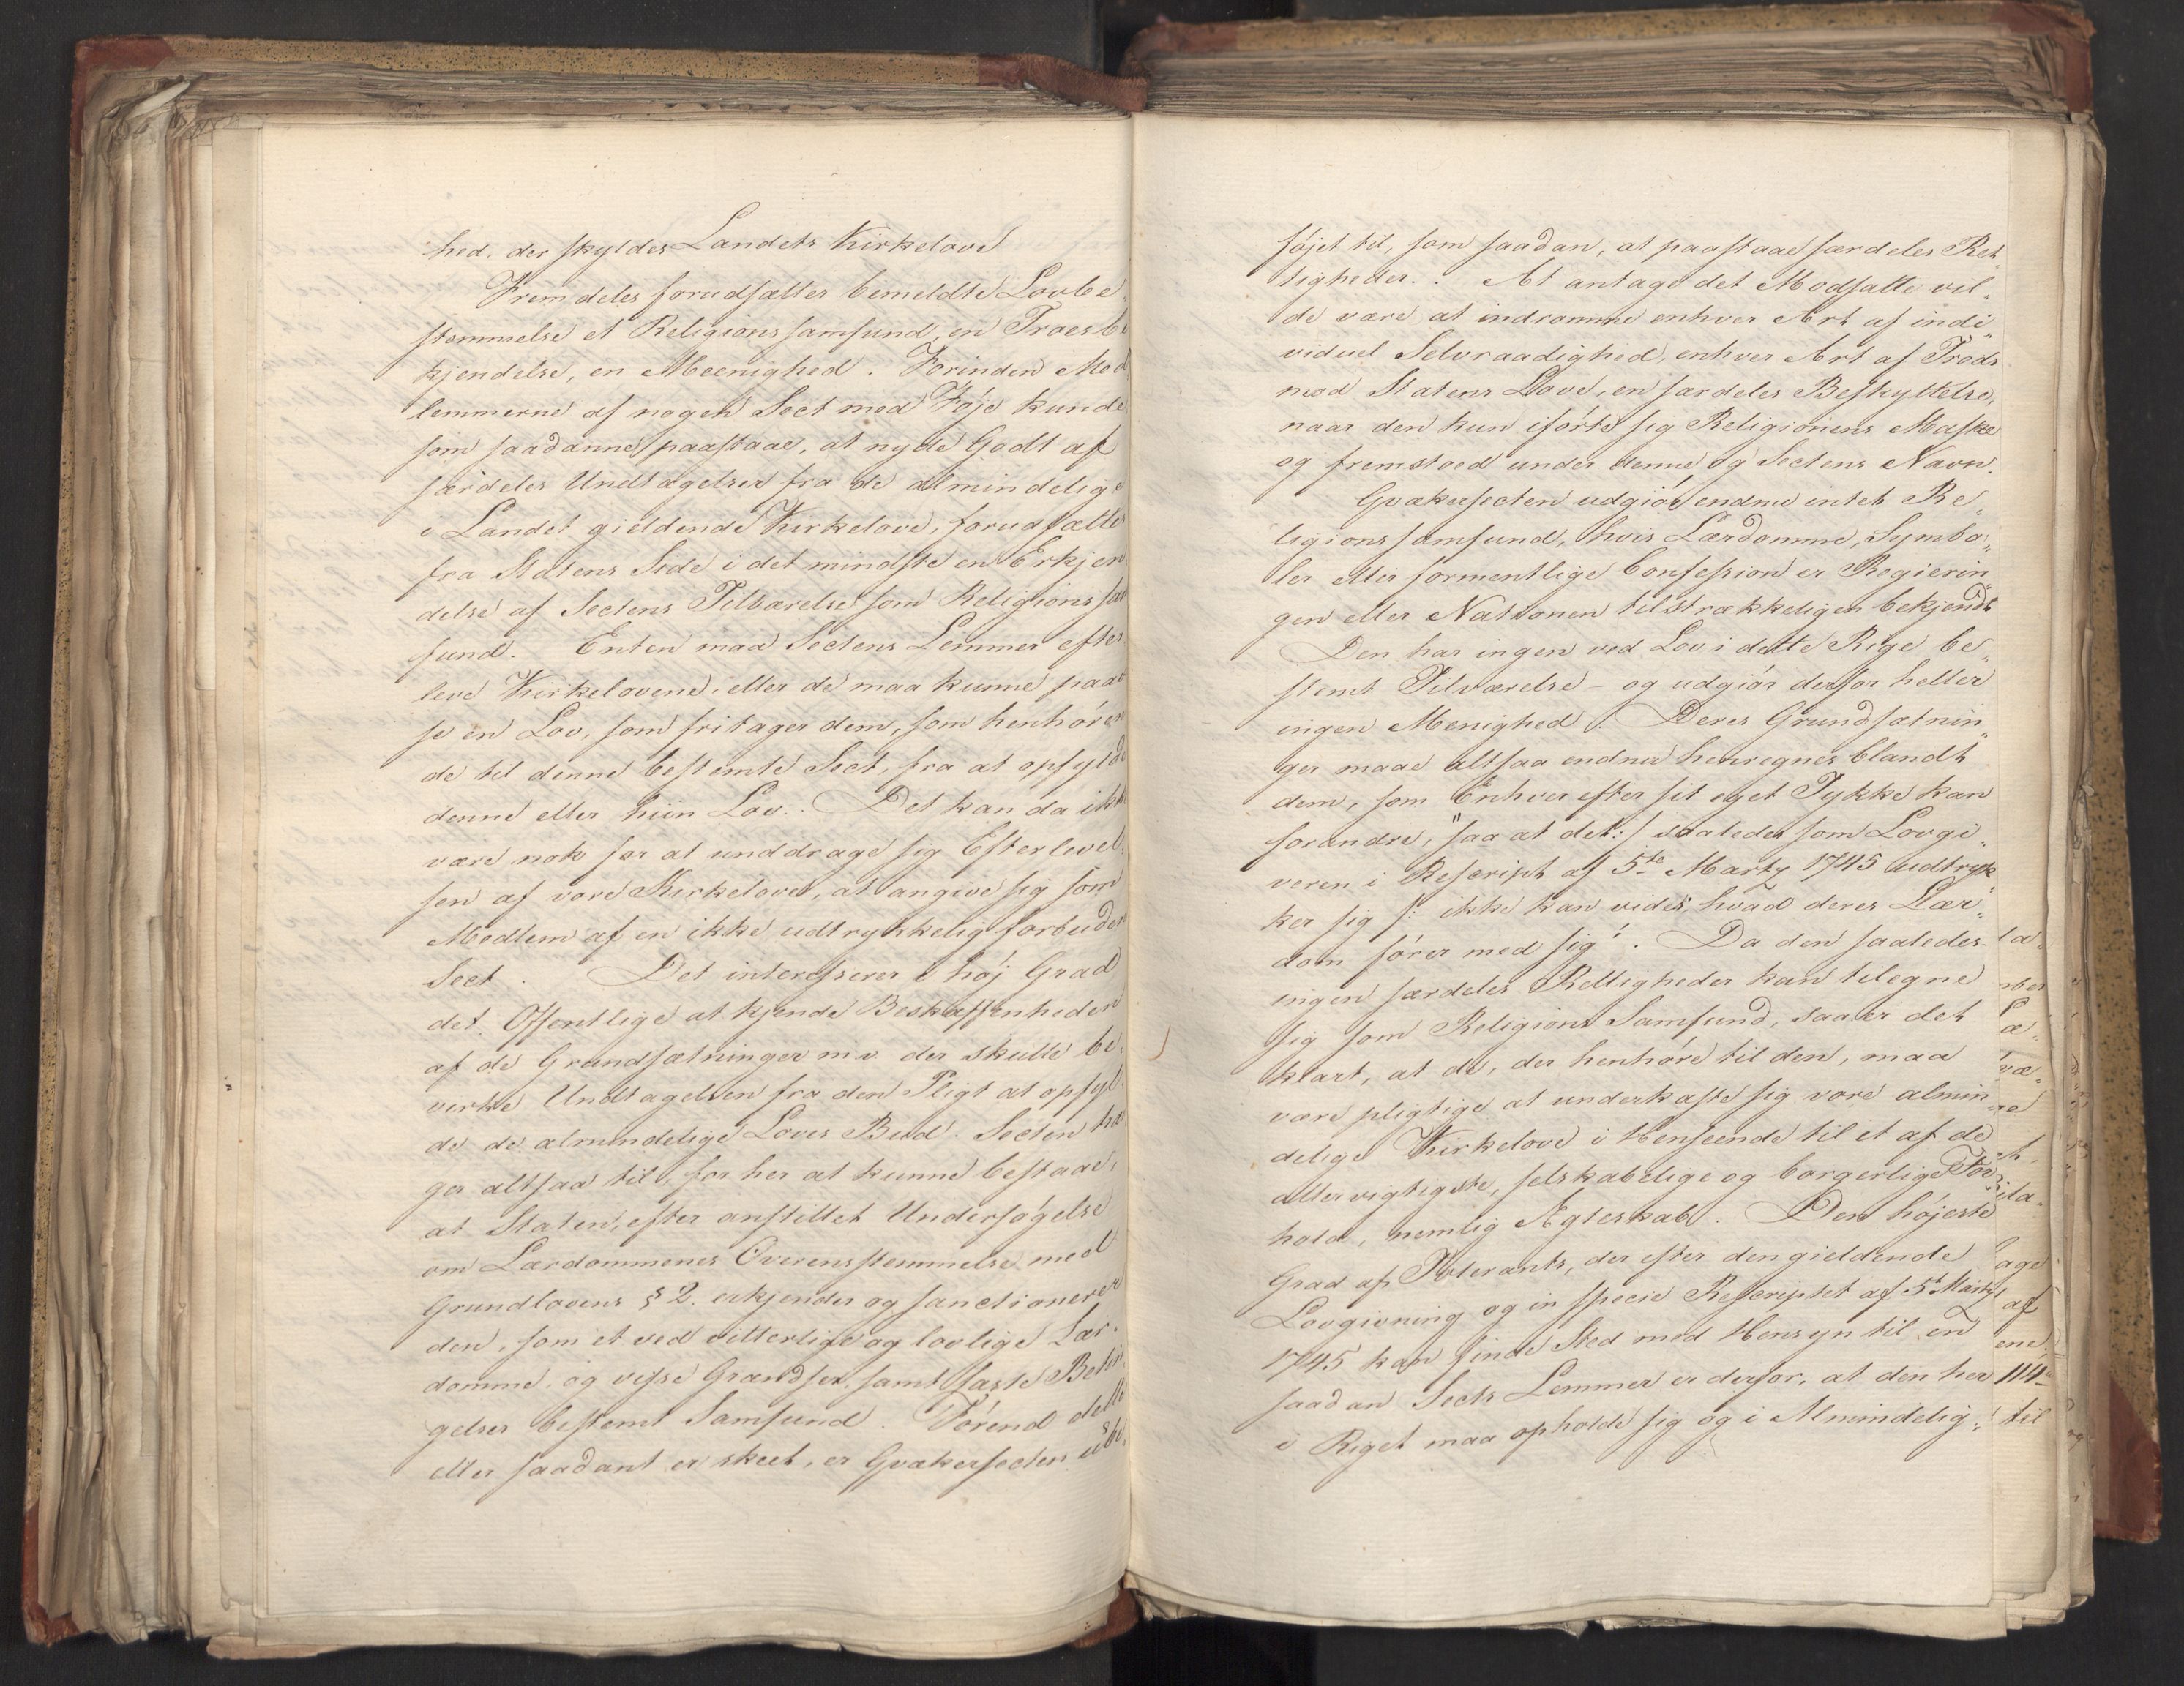 hed. der skyldes Landets Kirkelove
Fremdeles forudsætter bemeldte Lovbe¬
stemmelse et Religionssamfund, en Troesbe
kjendelse, en Meenighed. Forinden Med
lemmerne af nogen Sect med Føje kunde
som saadanne paastaae, at nyde Godt af
særdeles Undtagelser fra de almindelige
i Landet gieldende Kirkelove, forudsætte
fra Statens Side i det mindste en Erkjen
delse af Sectens Tilværelse som Religionssam
fund. Enten maa Sectens Lemmer efter
leve Kirkelovene, eller de maa kunne paa
se en Lov, som fritager dem, som henhøren
de til denne bestemte Sect, fra at opfylde
denne eller hiin Lov. Det kan da ikke
være nok for at unddrage sig Efterlevel¬
sen af vore Kirkelove, at angive sig som
Medlem af en ikke udtrykkelig forbuden
Sect. Det interesserer i høj Grad
det Offentlige at kjende Beskaffenheden
af de Grundsætninger m. v. der skulle be¬
virke Undtagelsen fra den Pligt at opfyl¬
de de almindelige Loves Bud. Secten træ
ger altsaa til, for her at kunne bestaae,
at Staten, efter anstillet Undersøgelse
om Lærdommenes Overensstemmelse med
Grundlovens § 2. erkjender og sanctionerer
den, som et ved vitterlige og lovlige Lær¬
domme, og visse Grændser, samt faste Betin
gelser bestemt Samfund. Førend dette
eller saadant er skeet, er Gvækersecten ube¬
føjet til, som saadan, at paastaae særdeles Ret¬
tigheder. At antage det Modsatte vil¬
de være at indrømme enhver Art af indi¬
viduel Selvraadighed, enhver Art af Trods
mod Statens Love, en særdeles Beskyttelse,
naar den kun iførte sig Religionens Maske
og fremstoed under denne og Sectens Navn.
Gvækersecten udgiør endnu intet Re¬
ligionssamfund, hvis Lærdomme, Symbo¬
ler eller formentlige Confession er Regierin¬
gen eller Nationen tilstrækkeligen bekjendt
Den har ingen ved Lov i dette Rige be¬
stemt Tilværelse – og udgiør derfor heller
ingen Menighed. Deres Grundsætnin¬
ger maae altsaa endnu henregnes blandt
dem, som Enhver efter sit eget Tykke kan
forandre, "saa at det :/ saaledes som Lovgi¬
veren i Rescript af 5te Marty 1745 udtryk¬
ker sig /: ikke kan vides, hvad deres Lær¬
dom fører med sig". Da den saaledes
ingen særdeles Rettigheder kan tilegne
sig som Religions Samfund, saa er det
klart, at de, der henhøre til den, maa
være pligtige at underkaste sig vore almin
delige Kirkelove i Henseende til et af de
allervigtigste, selskabelige og borgerlige For¬
hold, nemlig Ægteskab. Den højeste
Grad af Tolerants, der efter den gieldende
Lovgivning og in specie Rescriptet af 5t Marty
1745 kan finde Sted med Hensyn til en
saadan Sects Lemmer er derfor, at den her
i Riget maa opholde sig og i Almindelig¬